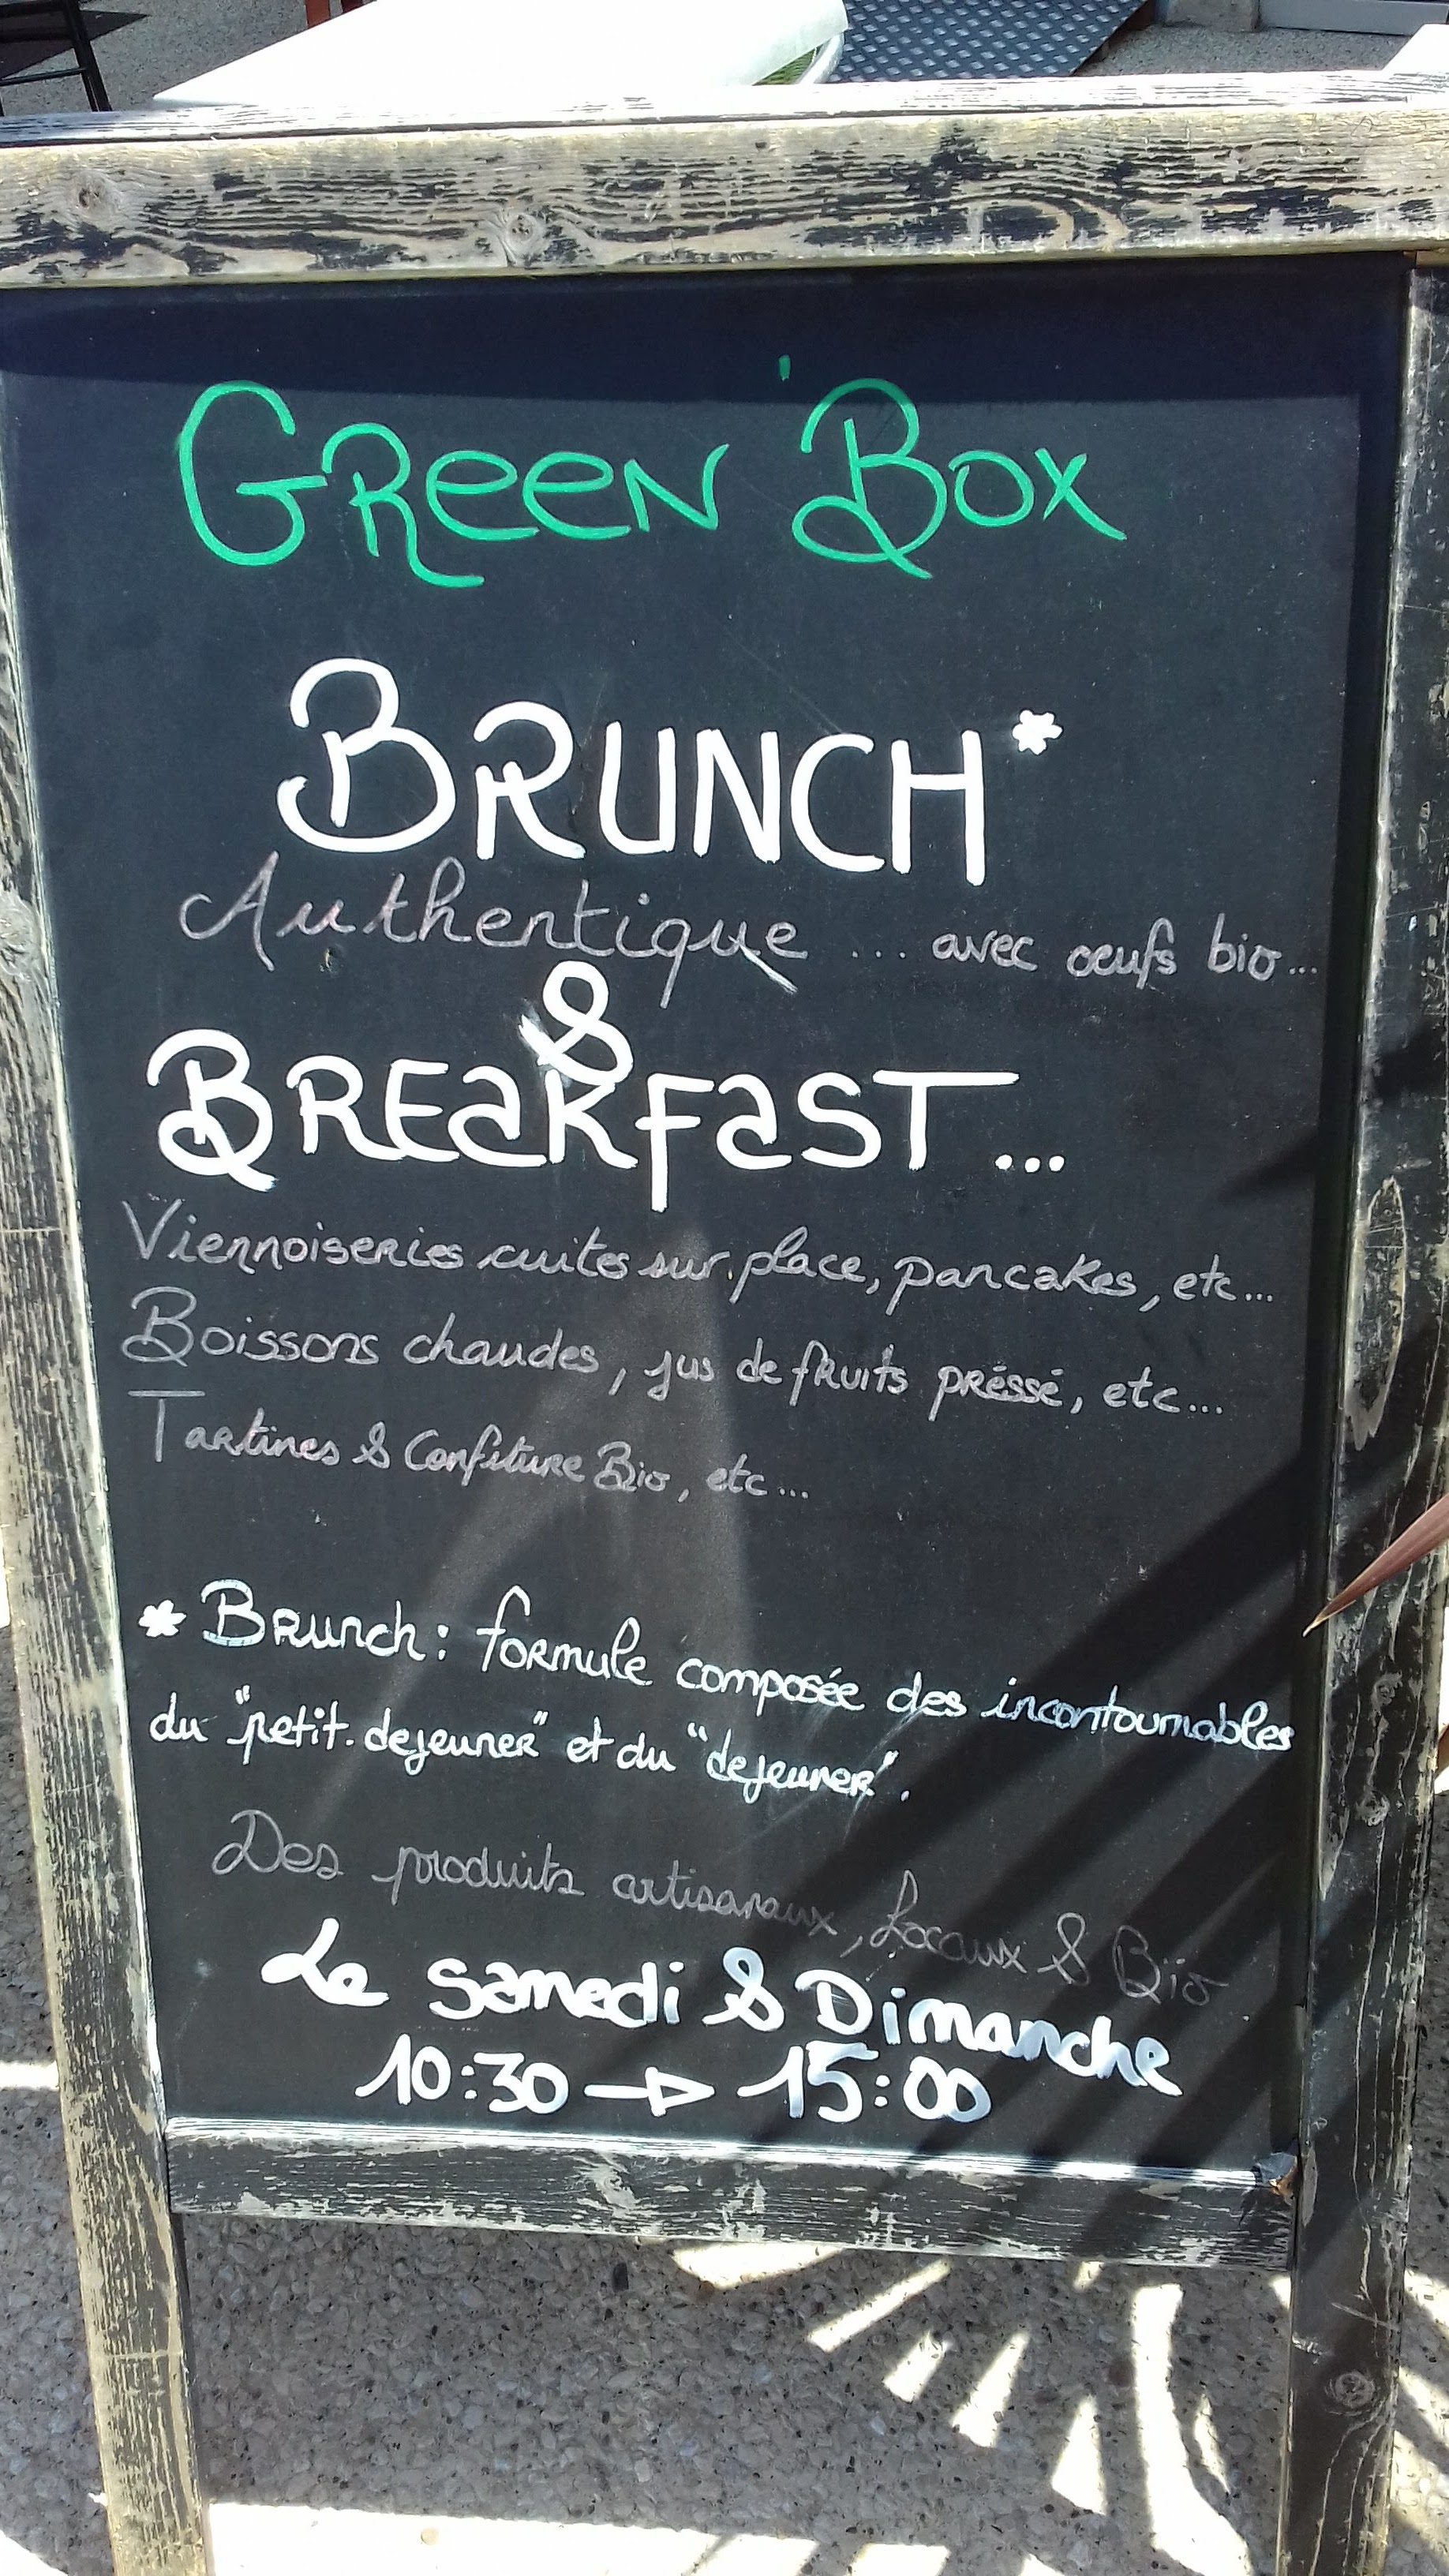 Green Box
BRUNCH*
Authentique ... avec oeufs bio...
&
BREAKFAST...
Viennoiseries cuites sur place, pancakes, etc...
Boissons chaudes, jus de fruits préssé, etc...
Tartines & Confiture Bio, etc...
* Brunch : formule composée des incontournables
du "petit-dejeuner" et du "dejeuner".
Des produits artisanaux, Locaux & Bio
Le samedi & Dimanche
10:30 → 15:00